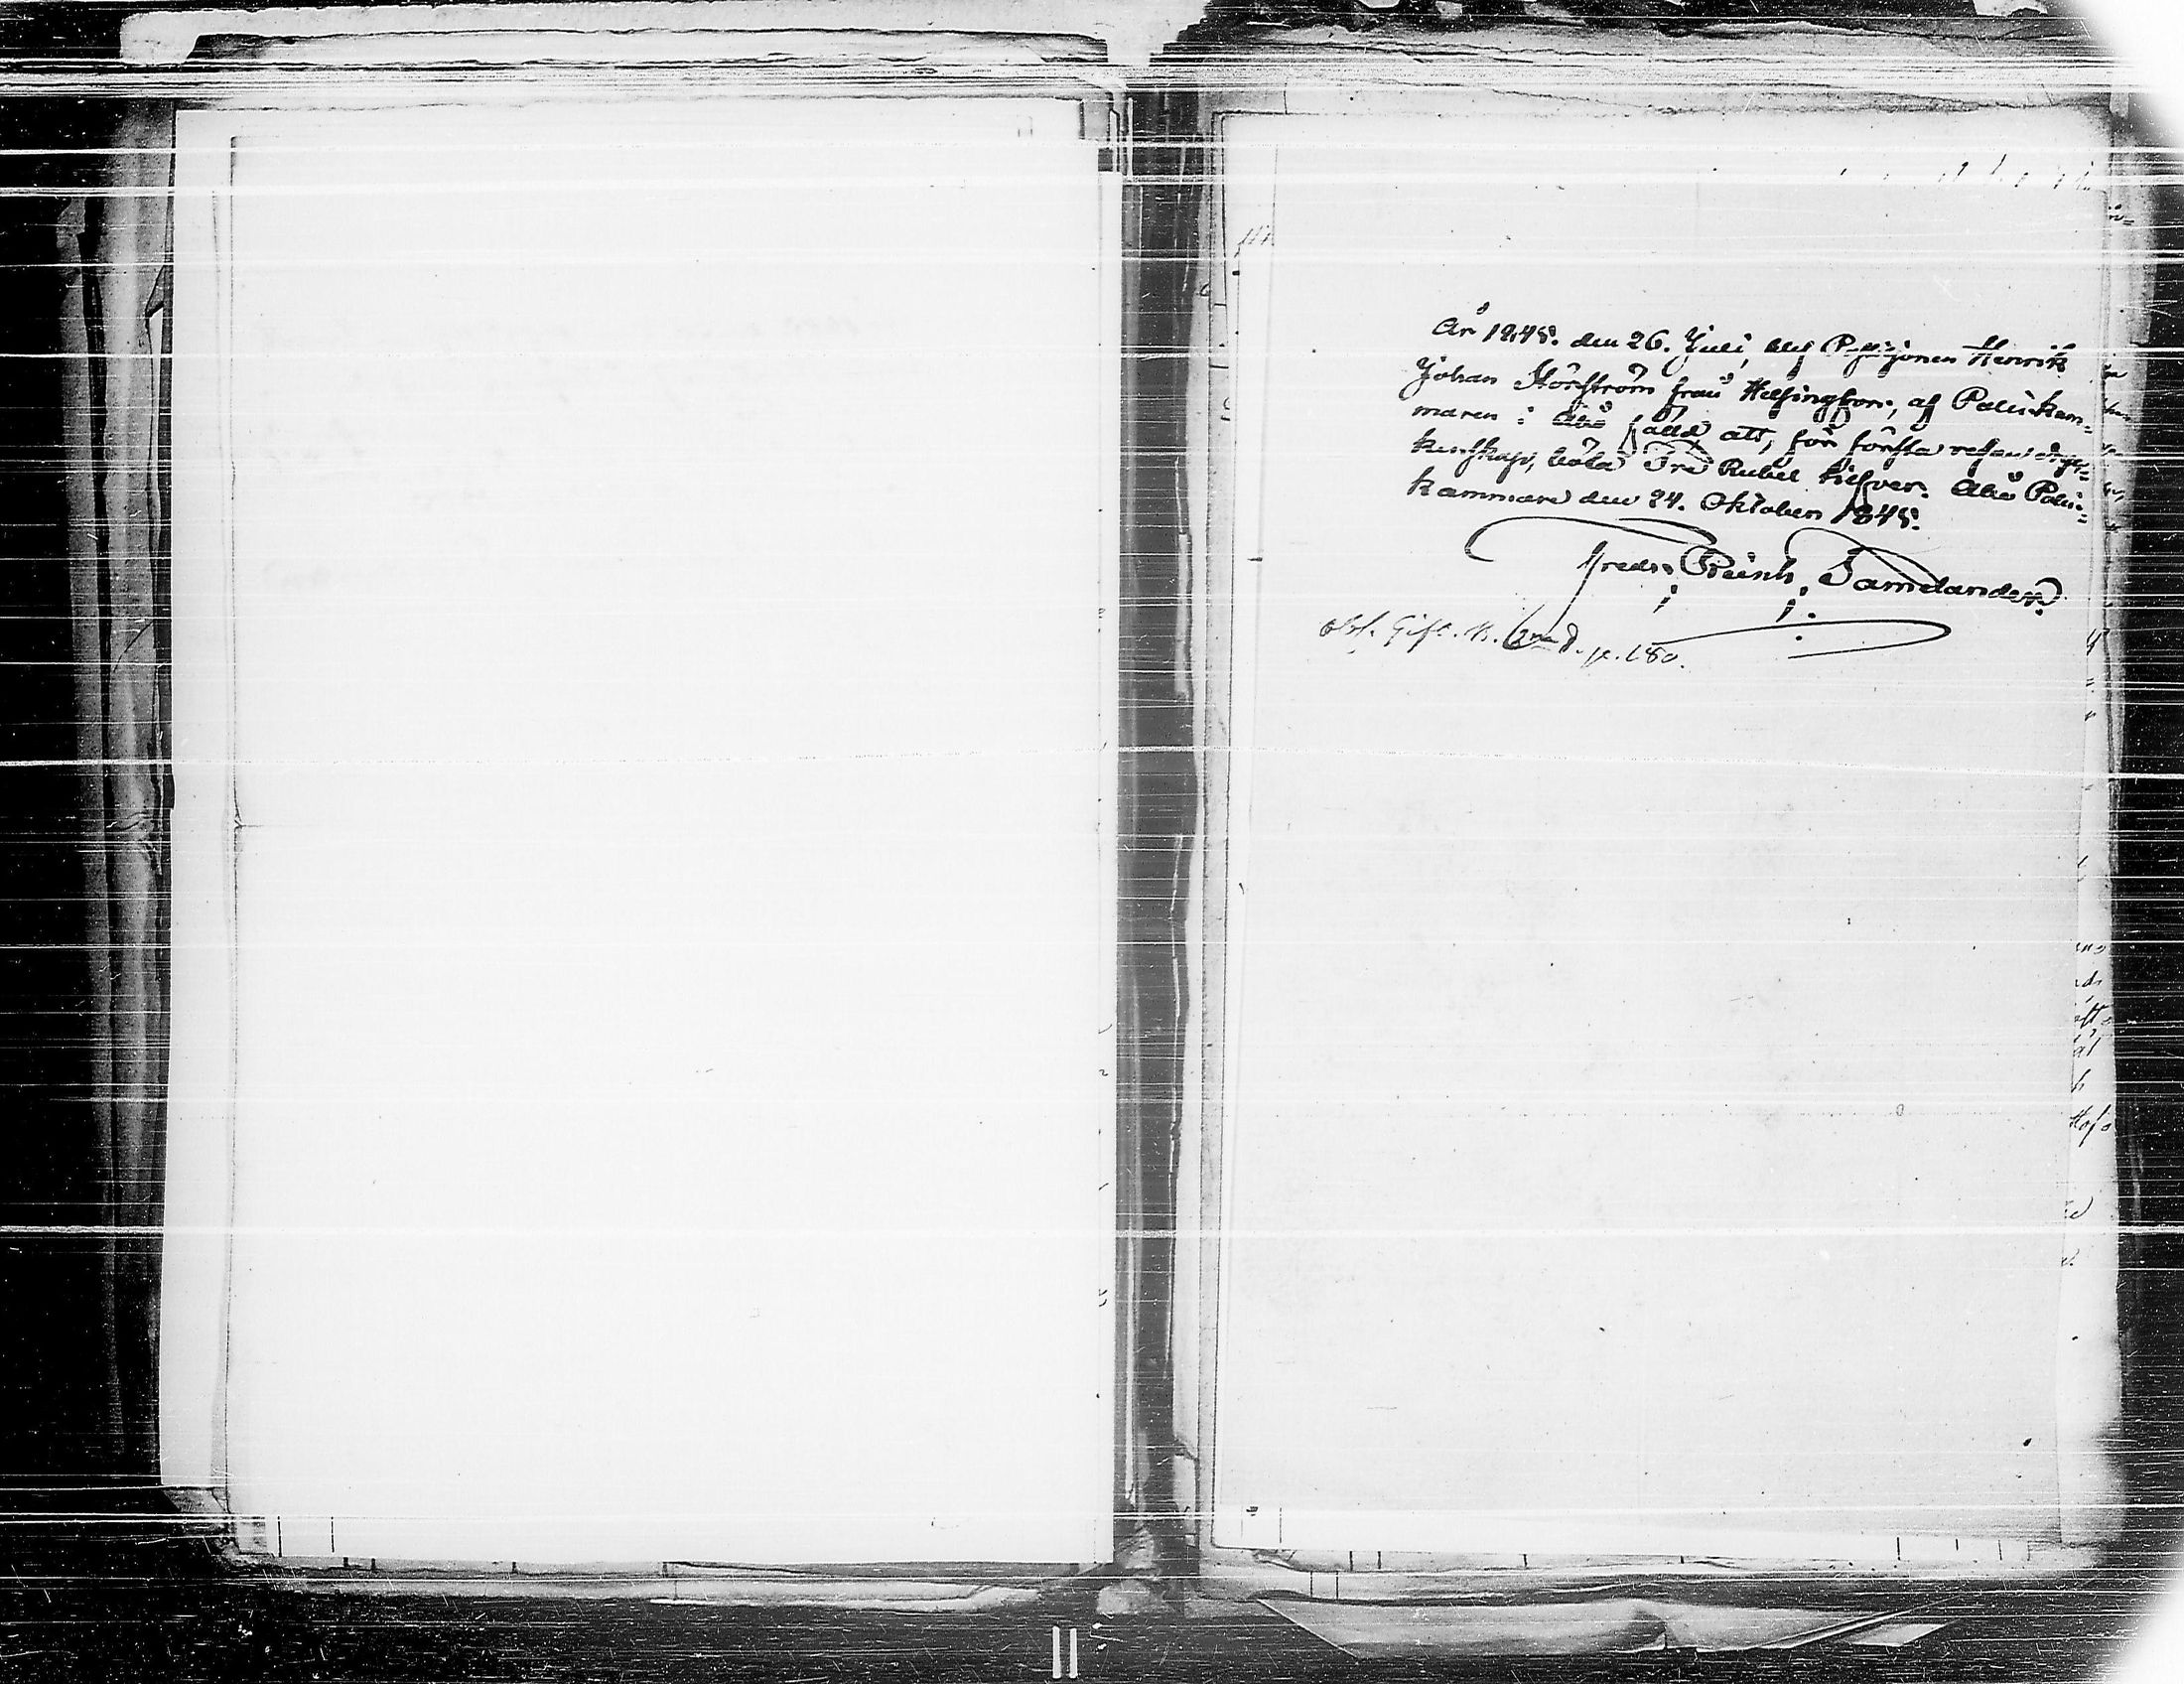 År 1845. den 26. Juli, blef Pigjonen Henrik
Johan Störström från Helsingfors, af Poliskam-
maren i Åbo fälld att, för första resans dryc-
kenskap, böta Tre Rubel silfver. Åbo Polis-
kammare den 24. Oktober 1845.
Fredr. Reinh. Tamelander.
Obs. Gift. p. 180.